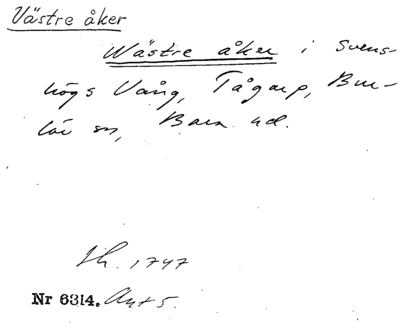 Västre åker
Wästre åker i Svens-
högs Vång, Tågarp, Bur-
löv sn, Bara hd.
Sk. 1747
Nr 6314. Akt 5.